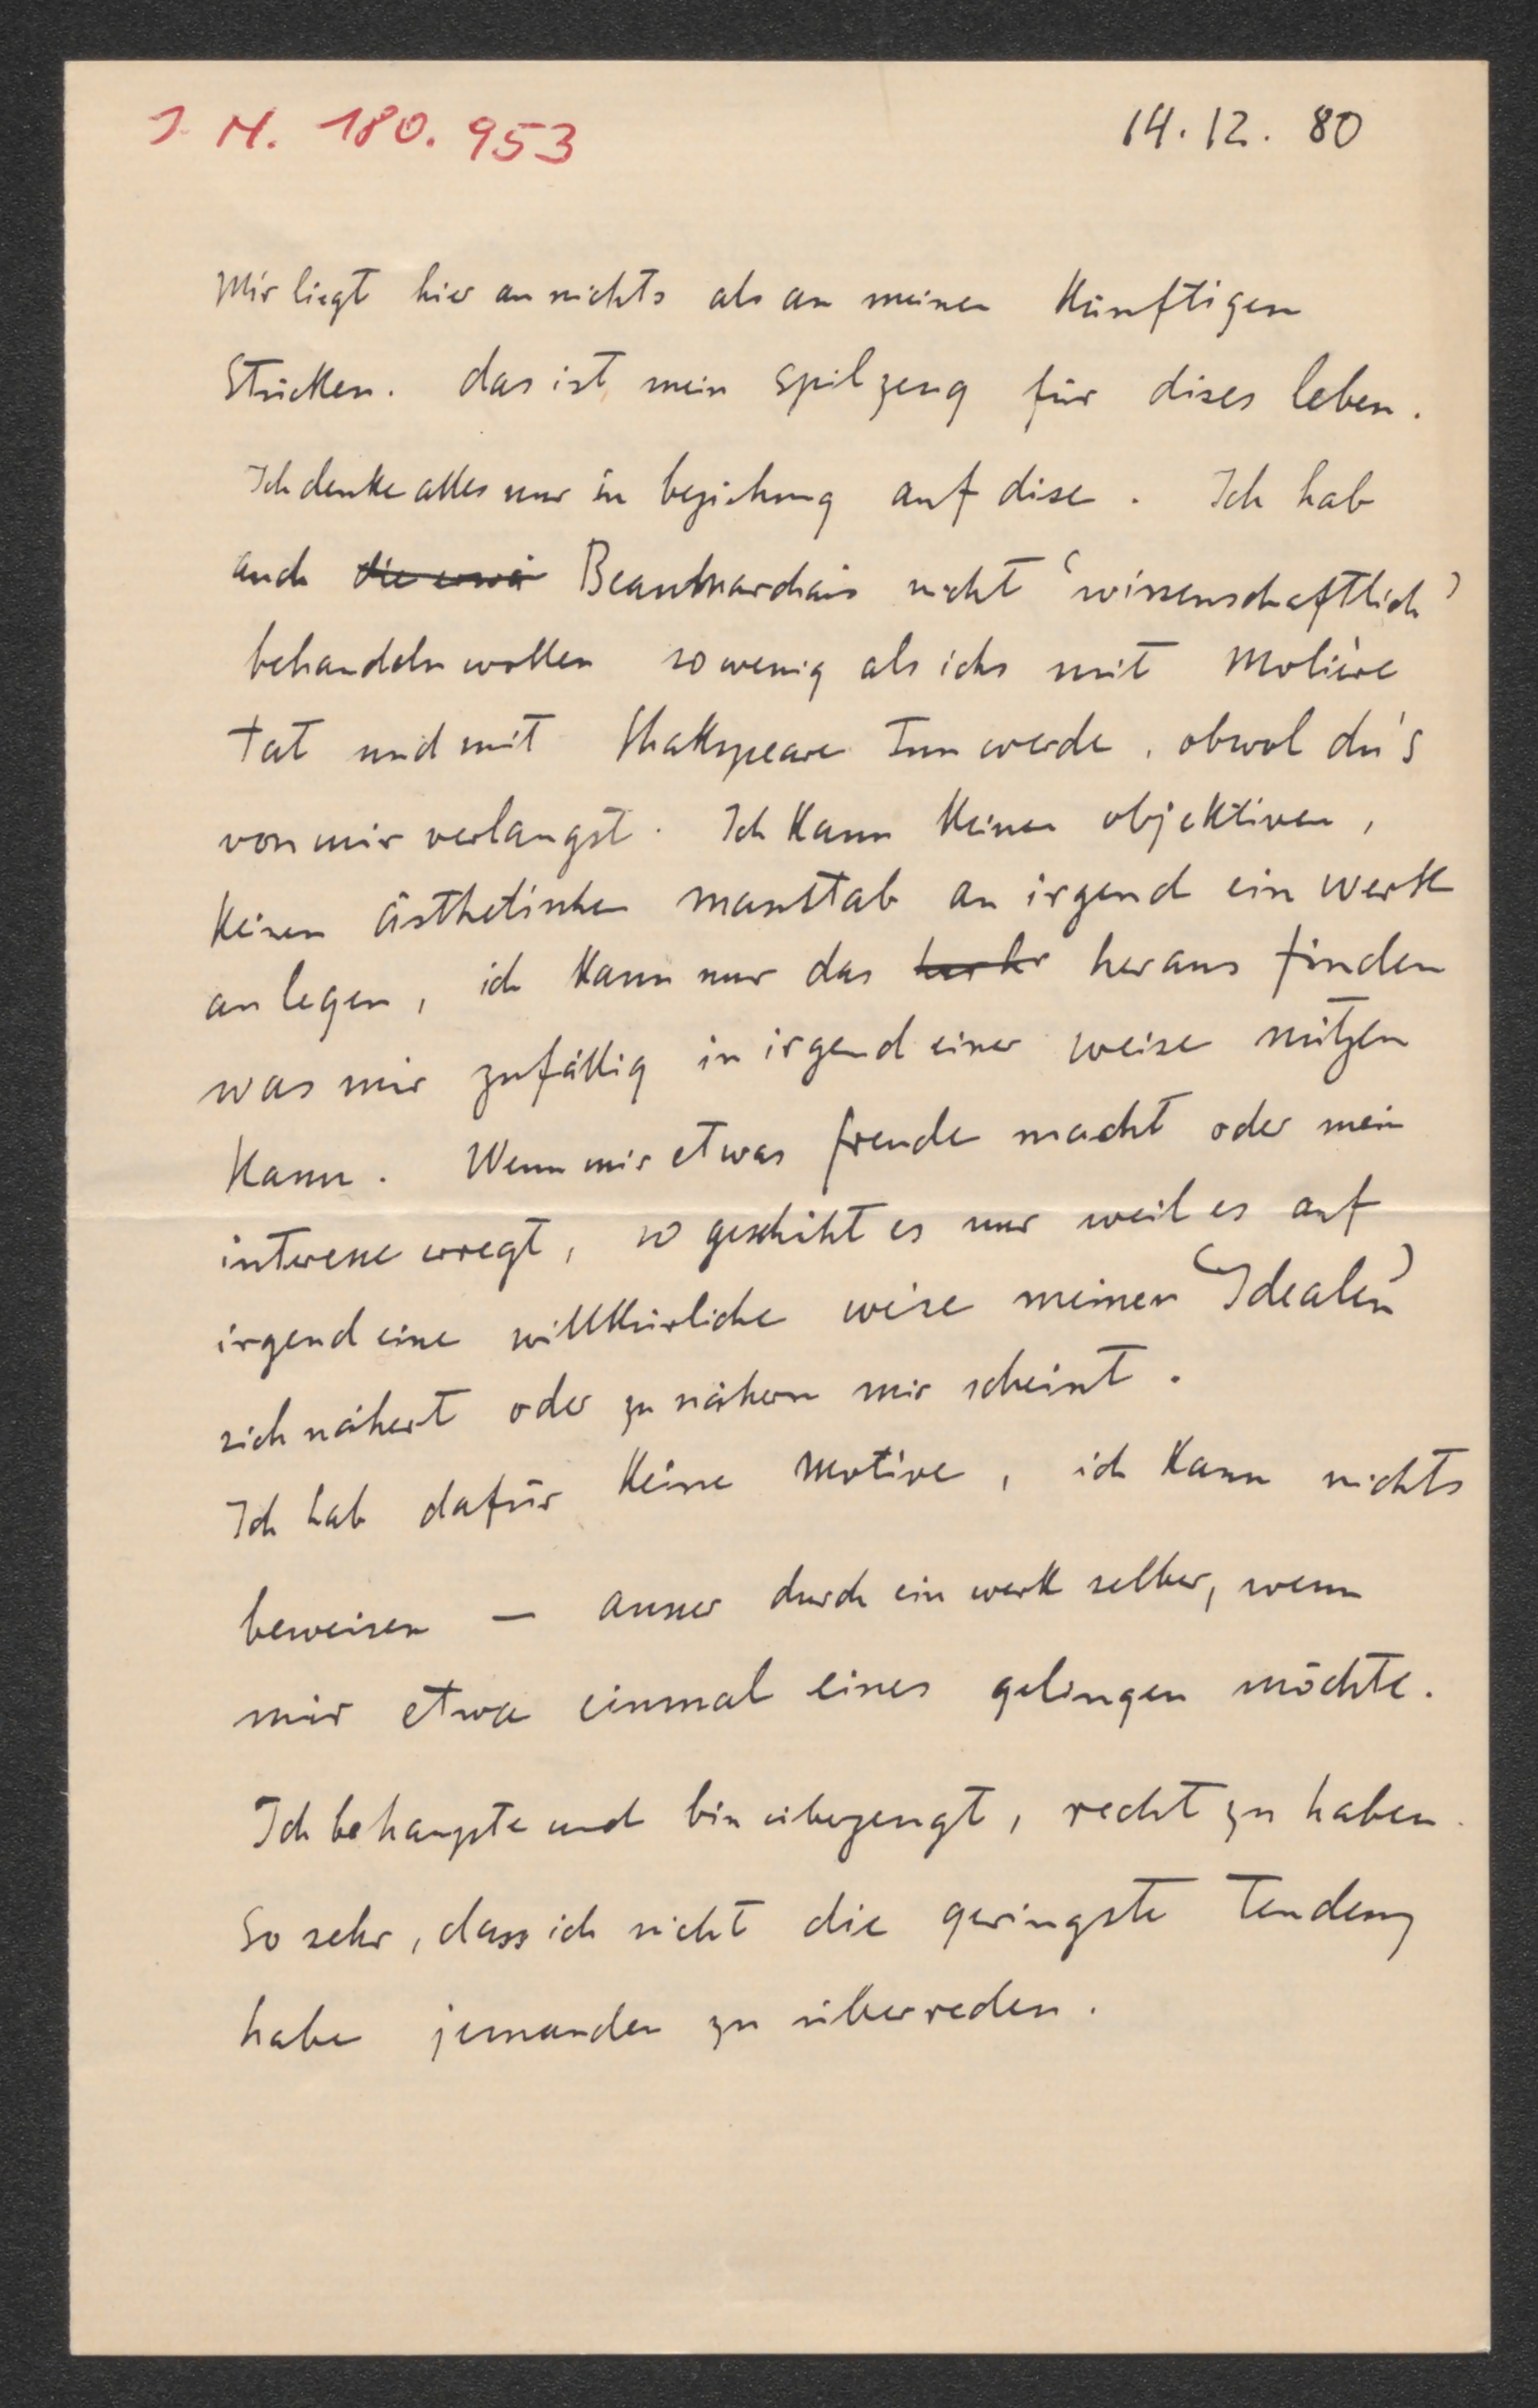 J. N. 180.953
14.12. 80
Mir liegt hier an nichts als an meinen künftigen
Stücken. das ist mein spilzeug für dises leben.
Ich denke alles nur in beziehung auf dise. Ich hab
auch Beaumarchais nicht 'wissenschaftlich'
behandeln wollen so wenig als ichs mit Molière
tat und mit Shakspeare tun werde, obwol du's
von mir verlangst. Ich kann keinen objektiven,
keinen ästhetischen masstab an irgend ein werk
anlegen, ich kann nur das heraus finden
was mir zufällig in irgend einer weise nützen
kann. Wenn mir etwas freude macht oder mein
interesse erregt, so geschiht es nur weil es auf
irgend eine willkürliche weise meinen 'Idealen'
sich nähert oder zu nähern mir scheint.
Ich hab dafür keine motive, ich kann nichts
beweisen — ausser durch ein werk selber, wenn
mir etwa einmal eines gelingen möchte.
Ich behaupte und bin überzeugt, recht zu haben.
So sehr, dass ich nicht die geringste Tendenz
habe jemanden zu überreden.